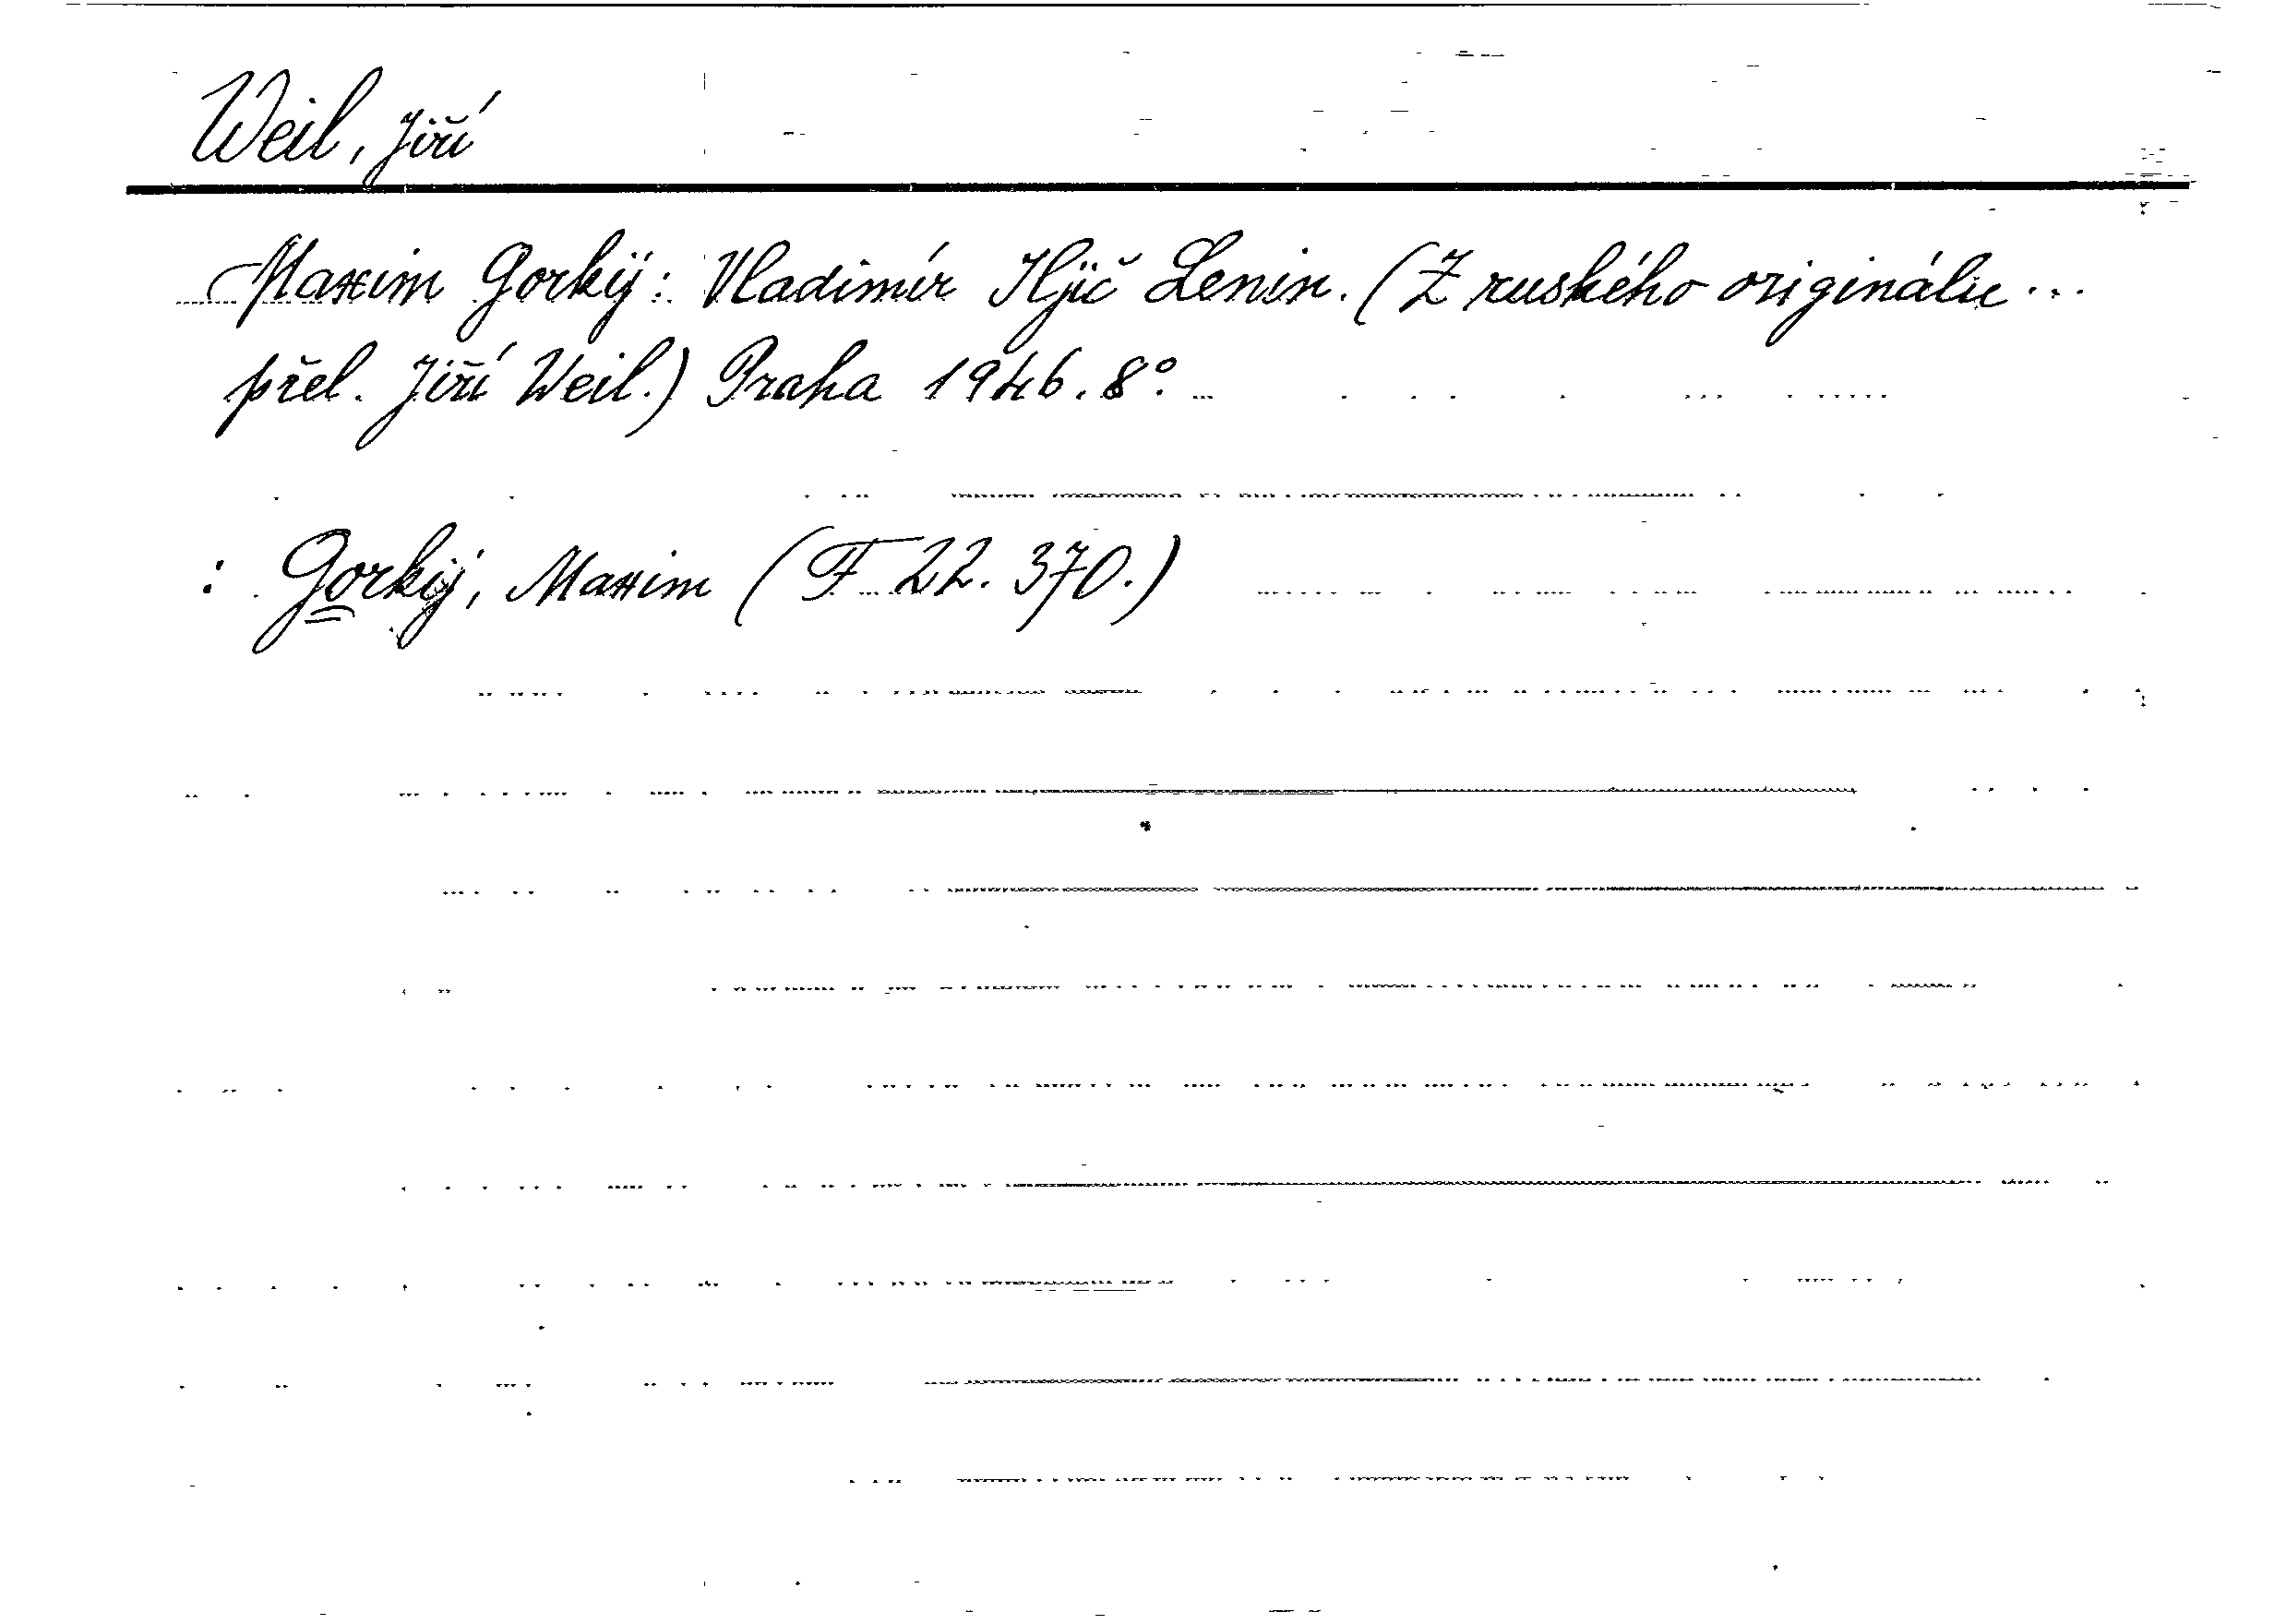 Weil, Jiří
Maxim Gorkij: Vladimír Iljič Lenin. (Z ruského originálu...
přel. Jiří Weil.) Praha 1946. 8°.
: Gorkij, Maxim (F 22. 370.)